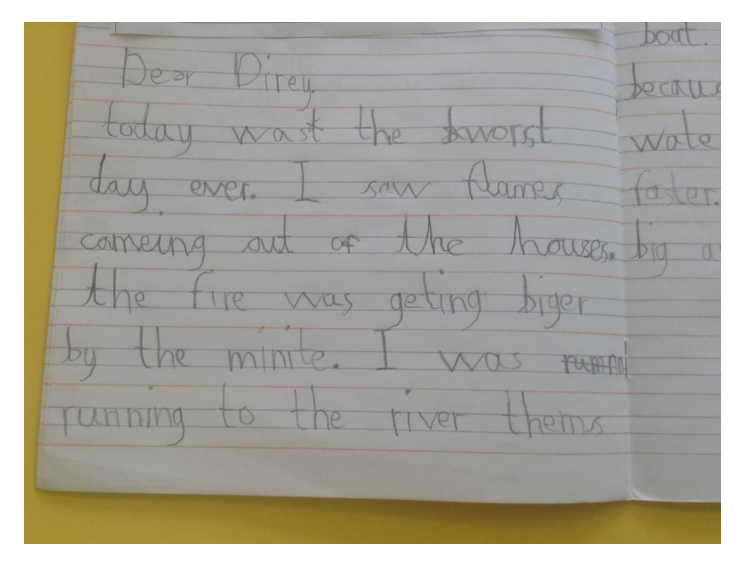 Dear Direy.
today wast the worst
day ever. I saw flames
cameing out of the houses.
the fire was geting biger
by the minite. I was
running to the river thems
boat.
becaus
wate
faster.
big a